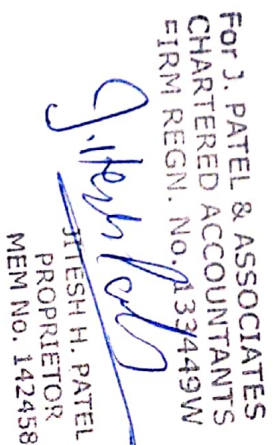 For J. PATEL & ASSOCIATES
CHARTERED ACCOUNTANTS
FIRM REGN. No. 133449W
JITESH H. PATEL
PROPRIETOR
MEM No. 142458